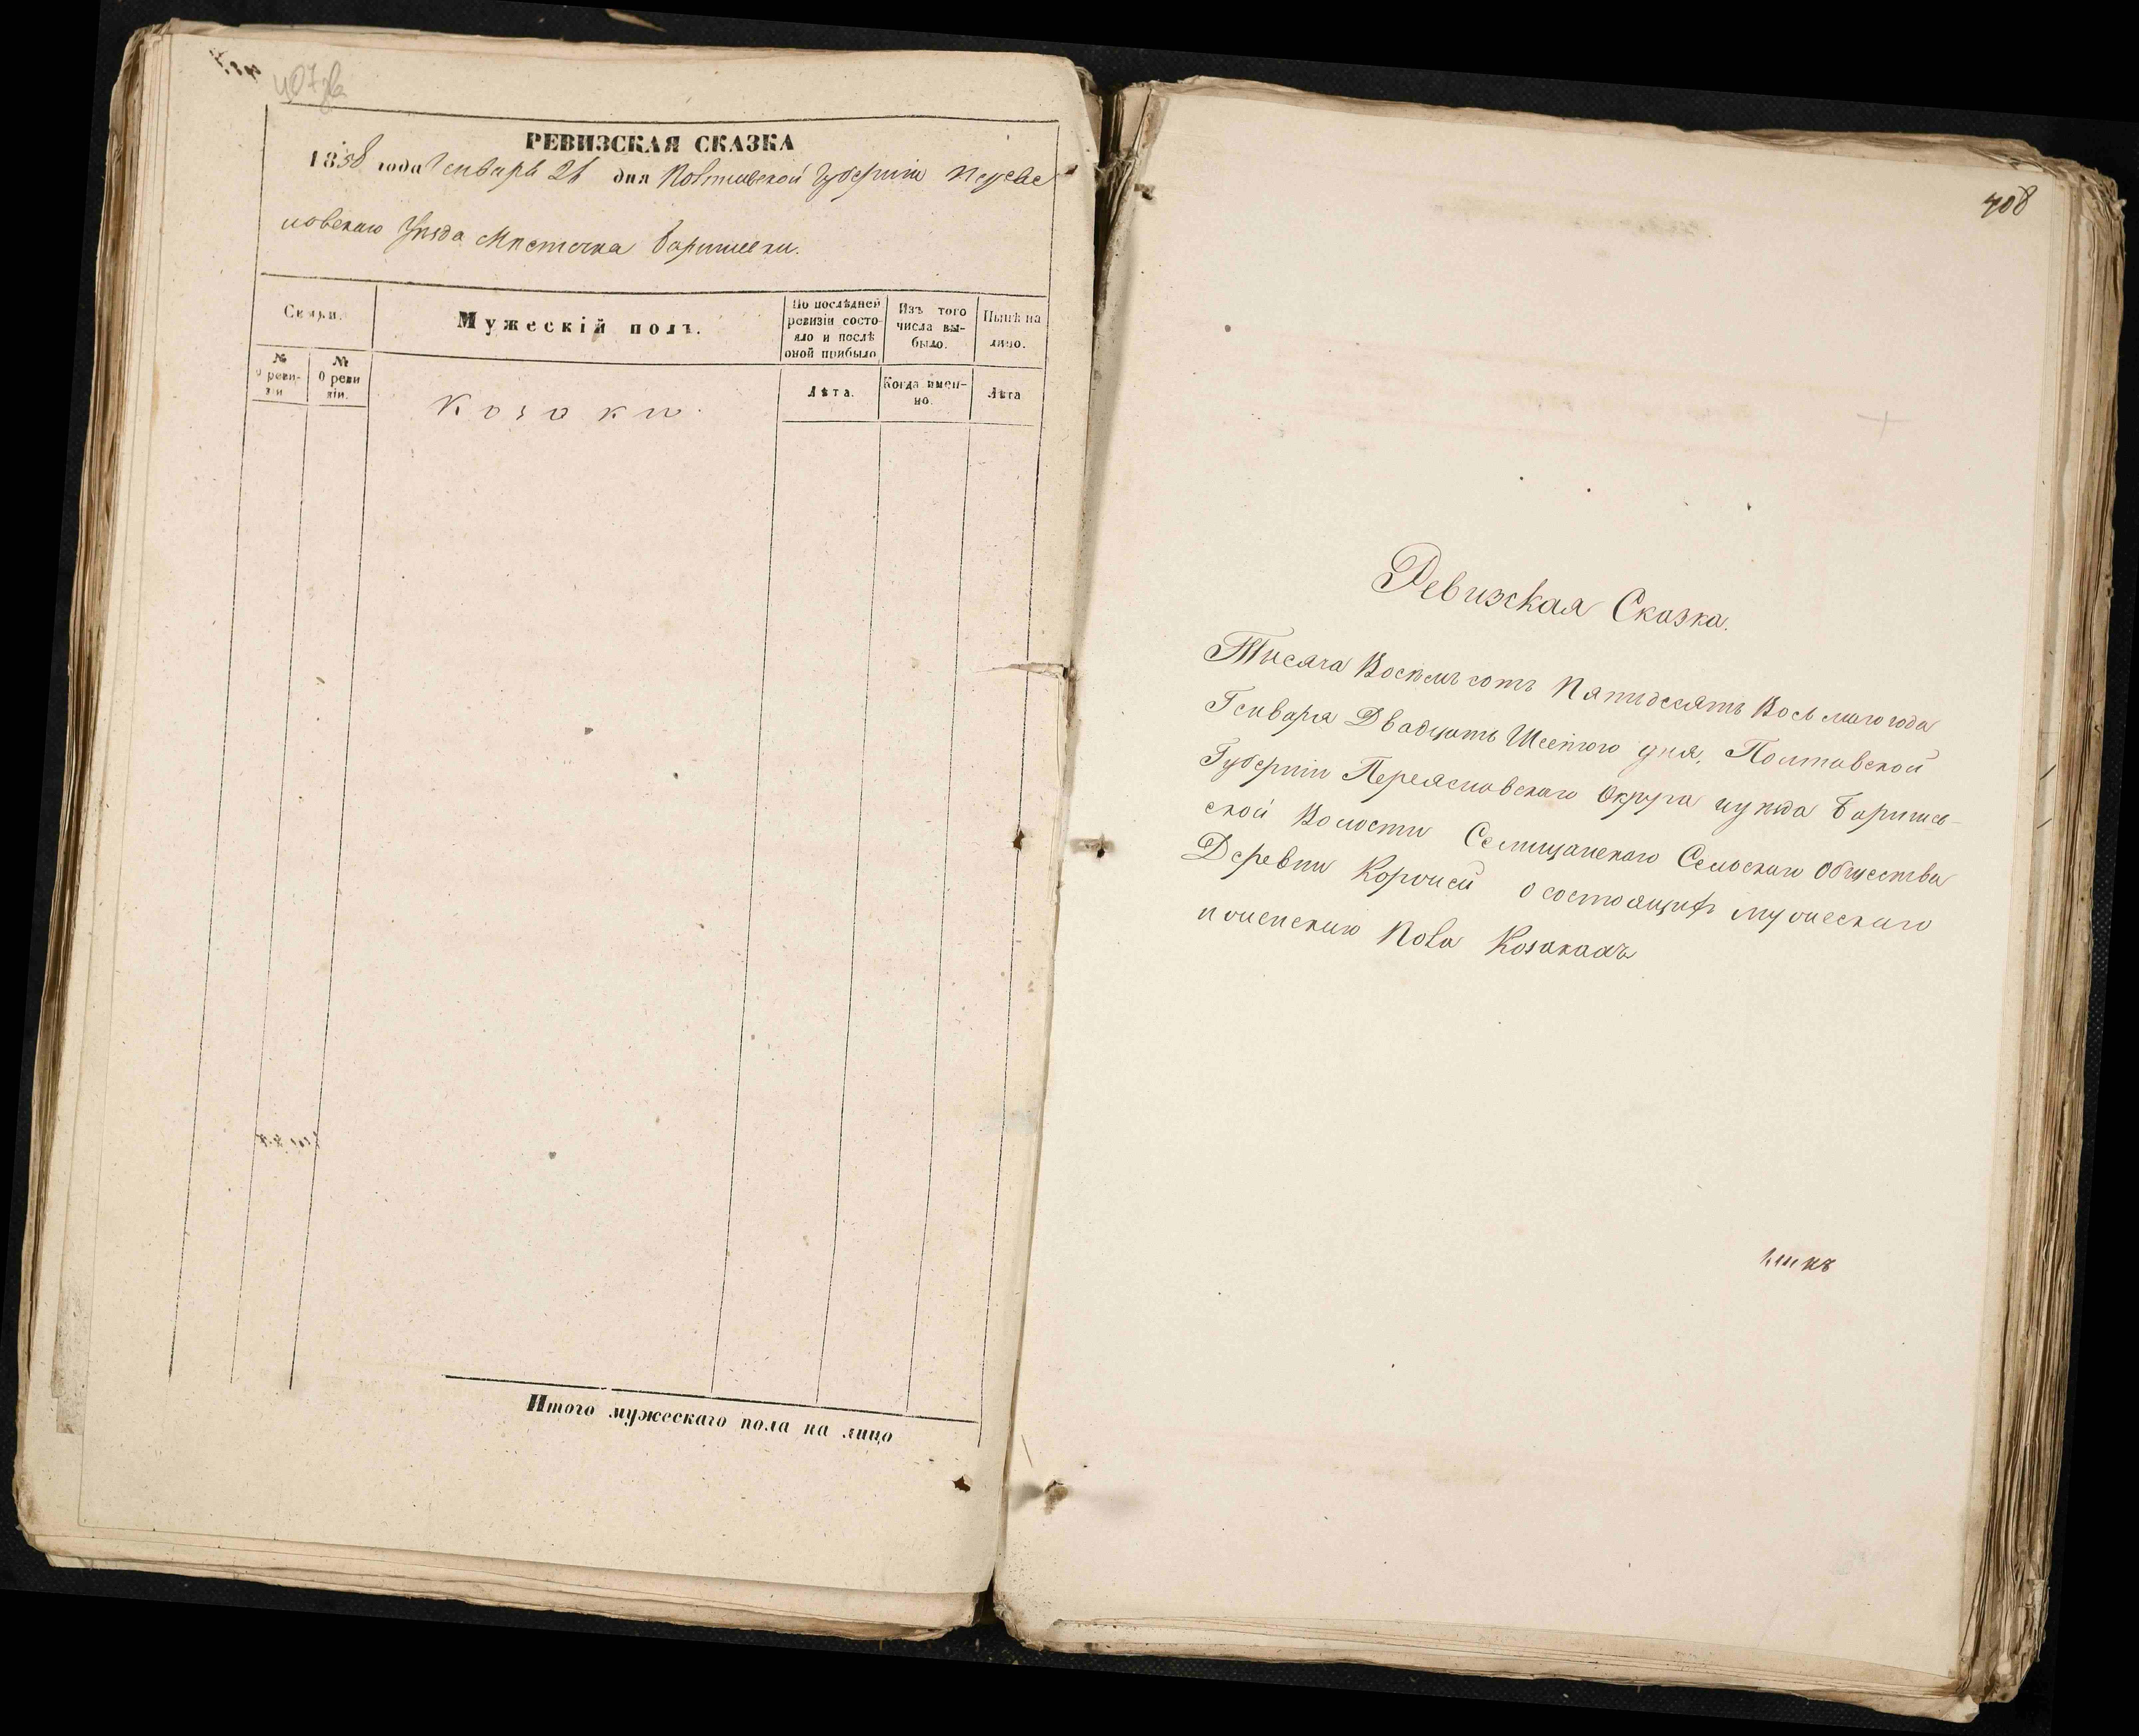 407 зв
РЕВИЗСКАЯ СКАЗКА
1858 года Генваря 26 дня Полтавской Губерніи Переяс
ловскаго Уѣзда Мѣстечка Баришевки.
Семьи.
Мужескій полъ.
По послѣдней ревизіи состояло и послѣ оной прибыло
Изъ того числа выбыло.
Нынѣ на лицо.
№ 0 ревизіи
№ 0 ревизіи.
Лѣта.
Когда именно.
Лѣта
Козаки.
Итого мужескаго пола на лицо
408
Ревизская Сказка.
Тисяча Восемъ сотъ Пятидесятъ Восьмаго года
Генваря Двадцать Шестого дня, Полтавской
Губерніи Переясловскаго Округа и уѣзда Баришев-
ской Волости Селищанскаго Сельскаго Общества
Деревни Коржей о состоящихъ мужескаго
и женскаго Пола Козакахъ